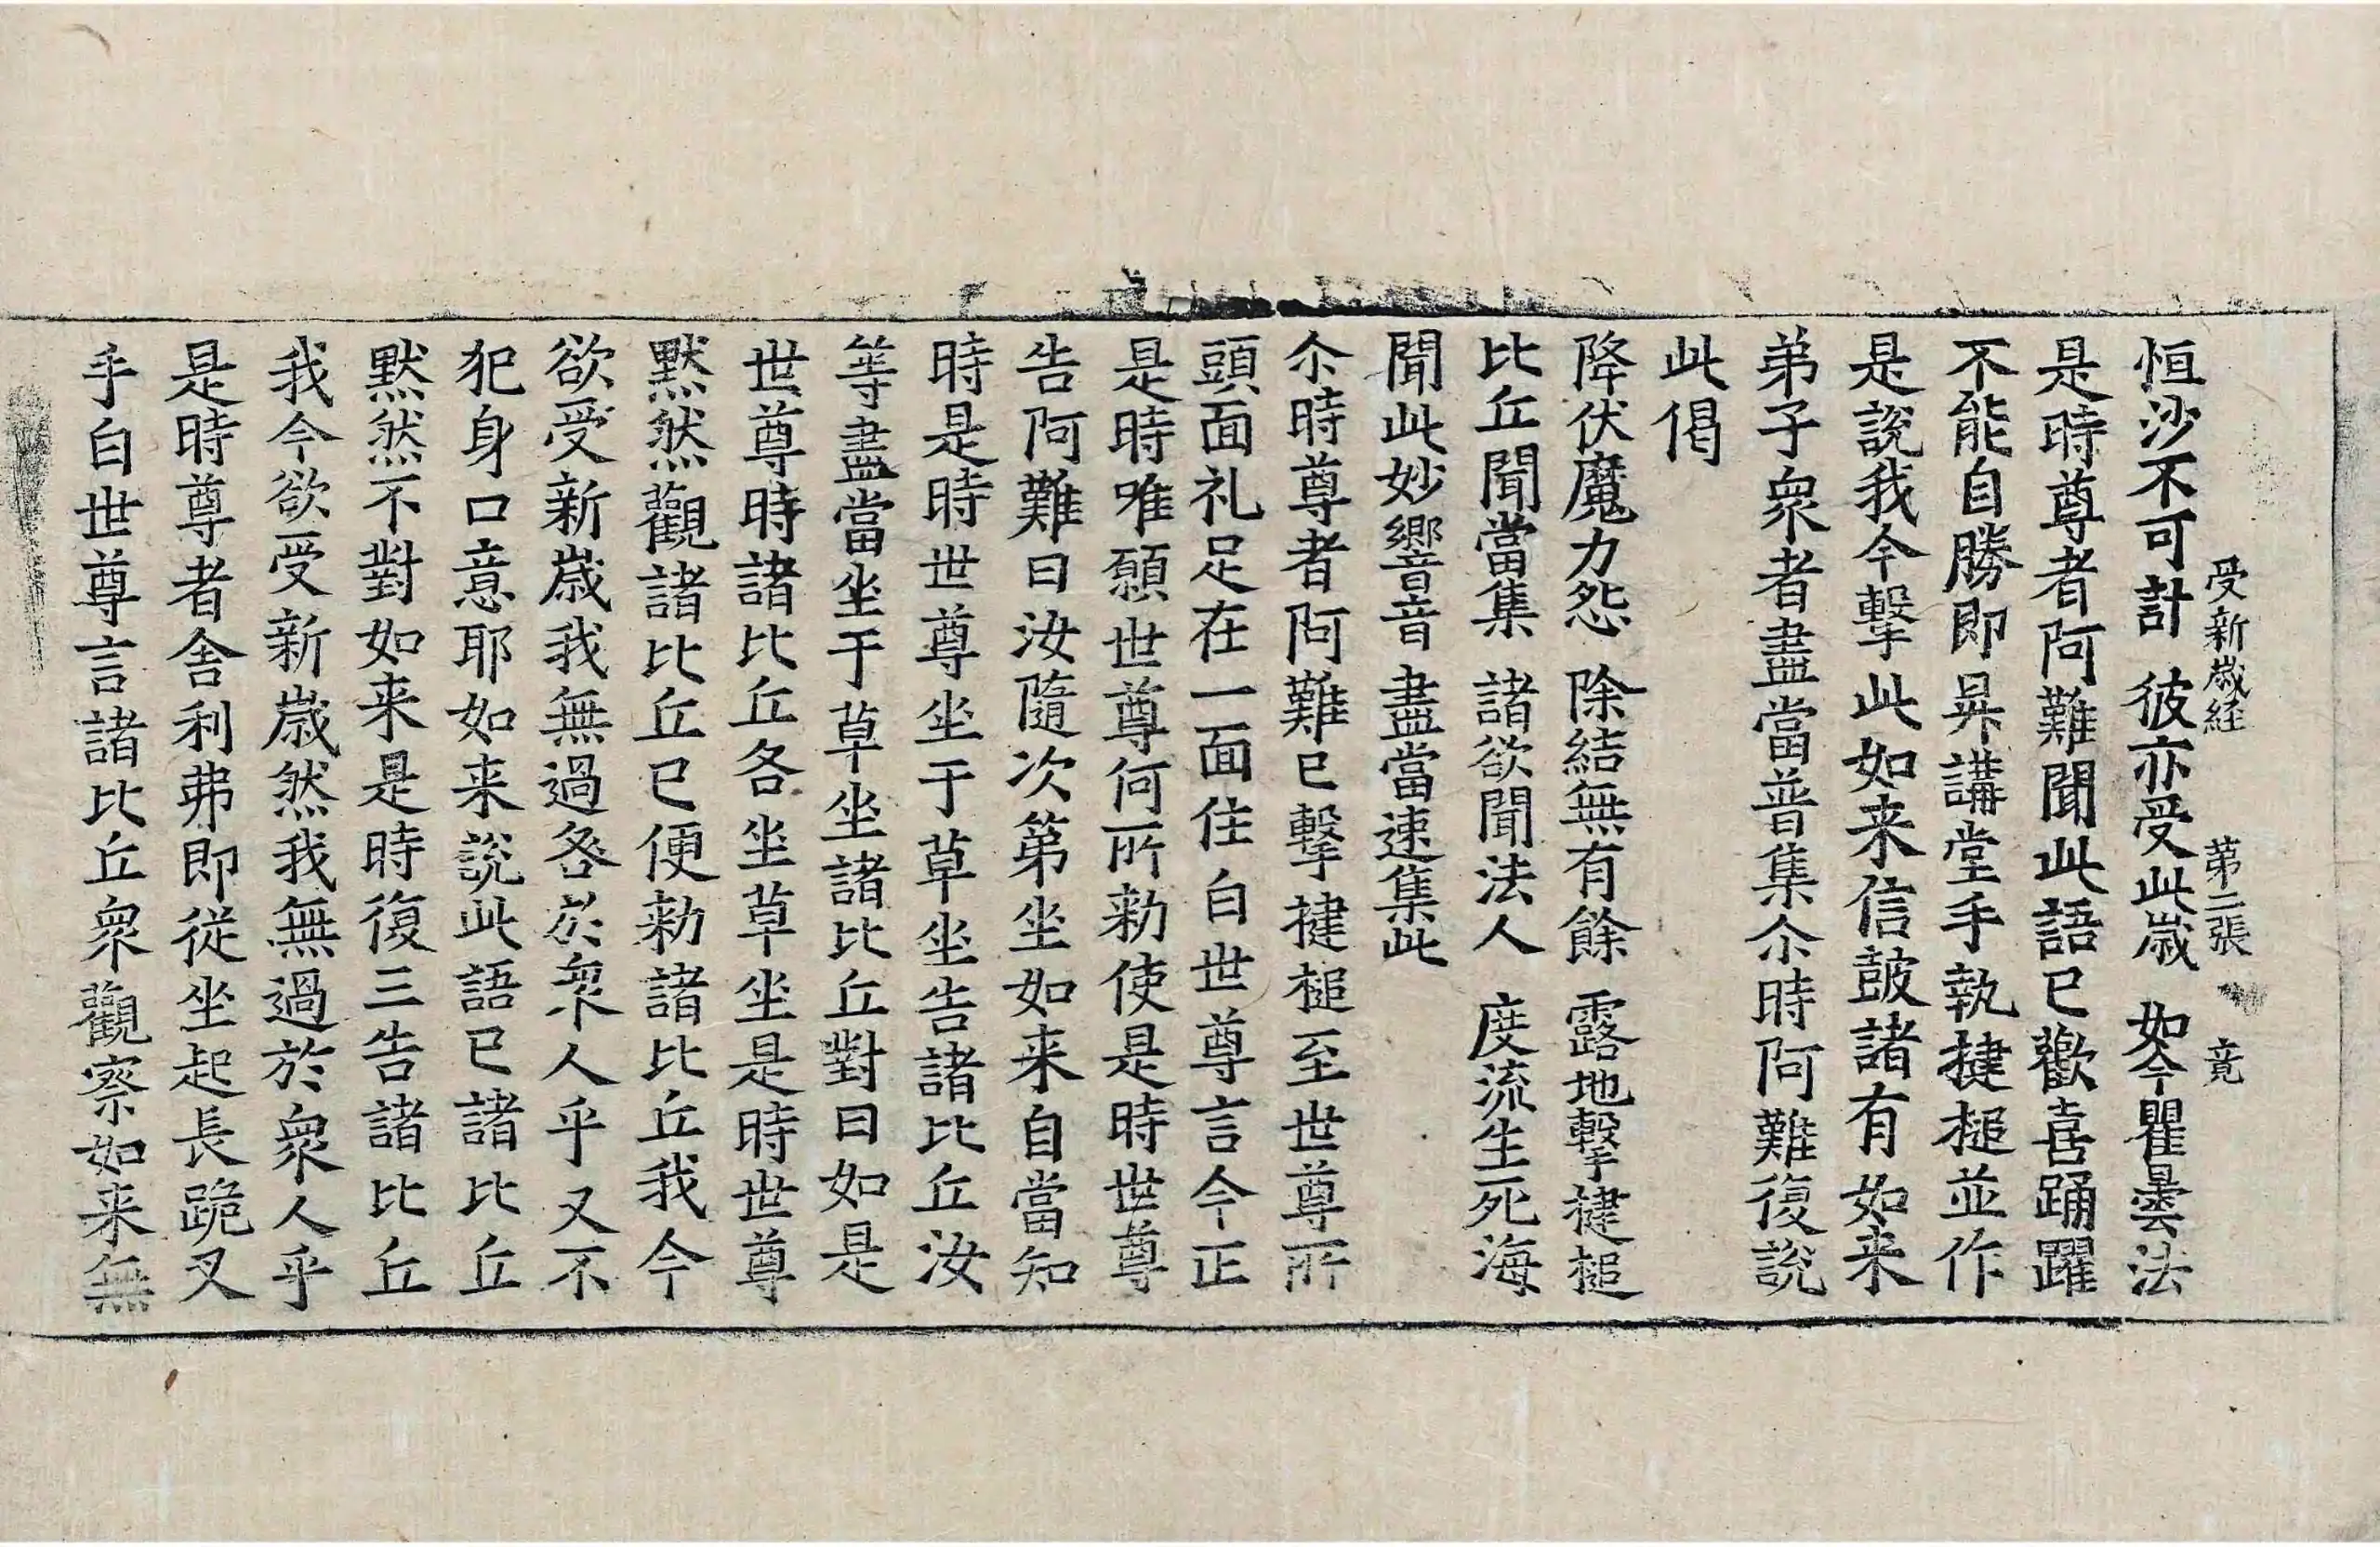 受新歳経 第二張 竟
恒沙不可計 彼亦受此歳 如今瞿曇法
是時尊者阿難聞此語已歡喜踊躍
不能自勝即昇講堂手執揵槌並作
是說我今擊此如来信皷諸有如来
弟子衆者盡當普集尒時阿難復說
此偈
降伏魔力怨 除結無有餘 露地擊揵槌
比丘聞當集 諸欲聞法人 度流生死海
聞此妙響音 盡當速集此
尒時尊者阿難已擊揵槌至世尊所
頭面礼足在一面住白世尊言今正
是時唯願世尊何所勑使是時世尊
告阿難曰汝隨次第坐如来自當知
時是時世尊坐于草坐告諸比丘汝
等盡當坐于草坐諸比丘對曰如是
世尊時諸比丘各坐草坐是時世尊
黙然觀諸比丘已便勑諸比丘我今
欲受新歳我無過咎於衆人乎又不
犯身口意耶如来說此語已諸比丘
黙然不對如来是時復三告諸比丘
我今欲受新歳然我無過於衆人乎
是時尊者舎利弗即従坐起長跪叉
手白世尊言諸比丘衆觀察如来無